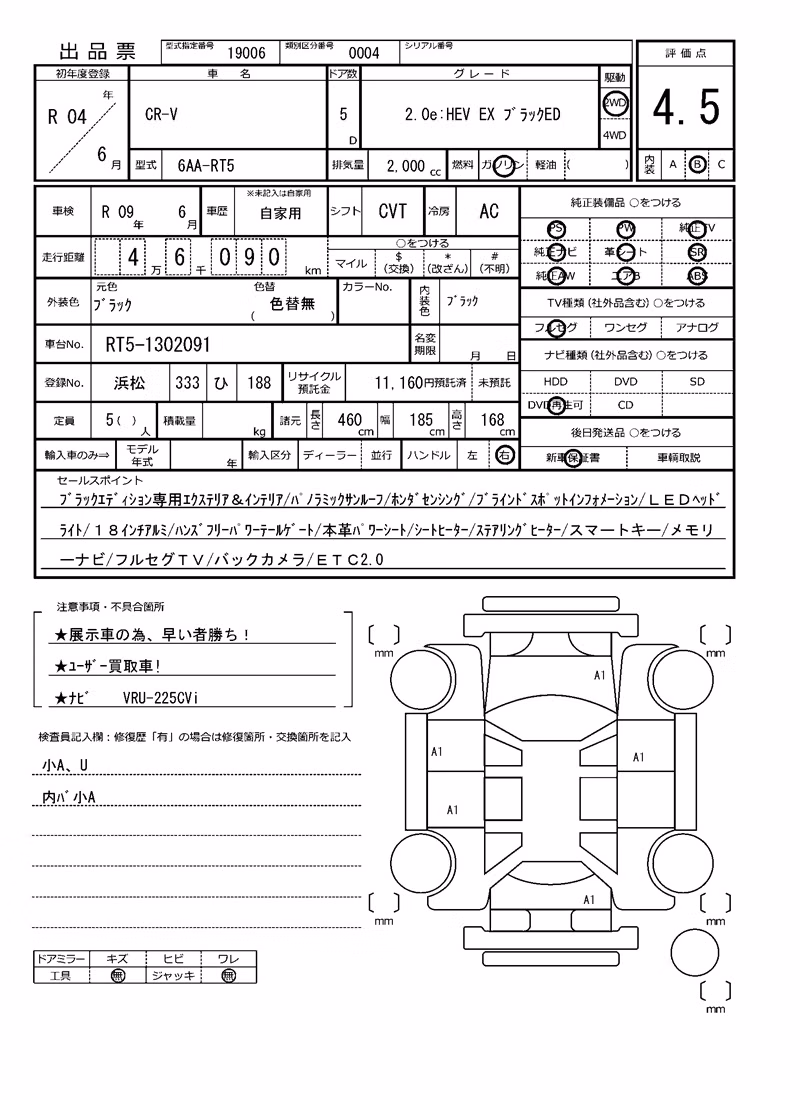 出品票
型式指定番号 19006 類別区分番号 0004 シリアル番号
初年度登録 車 名 ドア数 グレード 駆動 評価点
R 04 年 6 月 CR-V 5 D 2.0e:HEV EX ブラックED 2WD 4WD 4.5
型式 6AA-RT5 排気量 2,000 cc 燃料 ガソリン 軽油 ( ) 内装 A B C
車検 R 09 年 6 月 車歴 ※未記入は自家用 自家用 シフト CVT 冷房 AC 純正装備品 ○をつける
PS PW 純正TV
走行距離 4 万 6 千 0 9 0 km ○をつける 純正ナビ 革シート SR
マイル $ (交換) * (改ざん) # (不明) 純正AW エアB ABS
外装色 元色 ブラック 色替 ( 色替無 ) カラーNo. 内装色 ブラック TV種類(社外品含む)○をつける
フルセグ ワンセグ アナログ
車台No. RT5-1302091 名変期限 月 日 ナビ種類(社外品含む)○をつける
登録No. 浜松 333 ひ 188 リサイクル預託金 11,160円預託済 未預託 HDD DVD SD
DVD再生可 CD
定員 5( ) 人 積載量 kg 諸元 長さ 460 cm 幅 185 cm 高さ 168 cm 後日発送品 ○をつける
輸入車のみ⇒ モデル年式 年 輸入区分 ディーラー 並行 ハンドル 左 右 新車保証書 車輌取説
セールスポイント
ブラックエディション専用エクステリア&インテリア/パノラミックサンルーフ/ホンダセンシング/ブラインドスポットインフォメーション/LEDヘッド
ライト/18インチアルミ/ハンズフリーパワーテールゲート/本革パワーシート/シートヒーター/ステアリングヒーター/スマートキー/メモリ
ーナビ/フルセグTV/バックカメラ/ETC2.0
注意事項・不具合箇所
★展示車の為、早い者勝ち!
★ユーザー買取車!
★ナビ VRU-225CVi
検査員記入欄:修復歴「有」の場合は修復箇所・交換箇所を記入
小A、U
内バ小A
ドアミラー キズ ヒビ ワレ
工具 無 ジャッキ 無
mm
mm
A1
A1
A1
A1
A1
mm
mm
mm